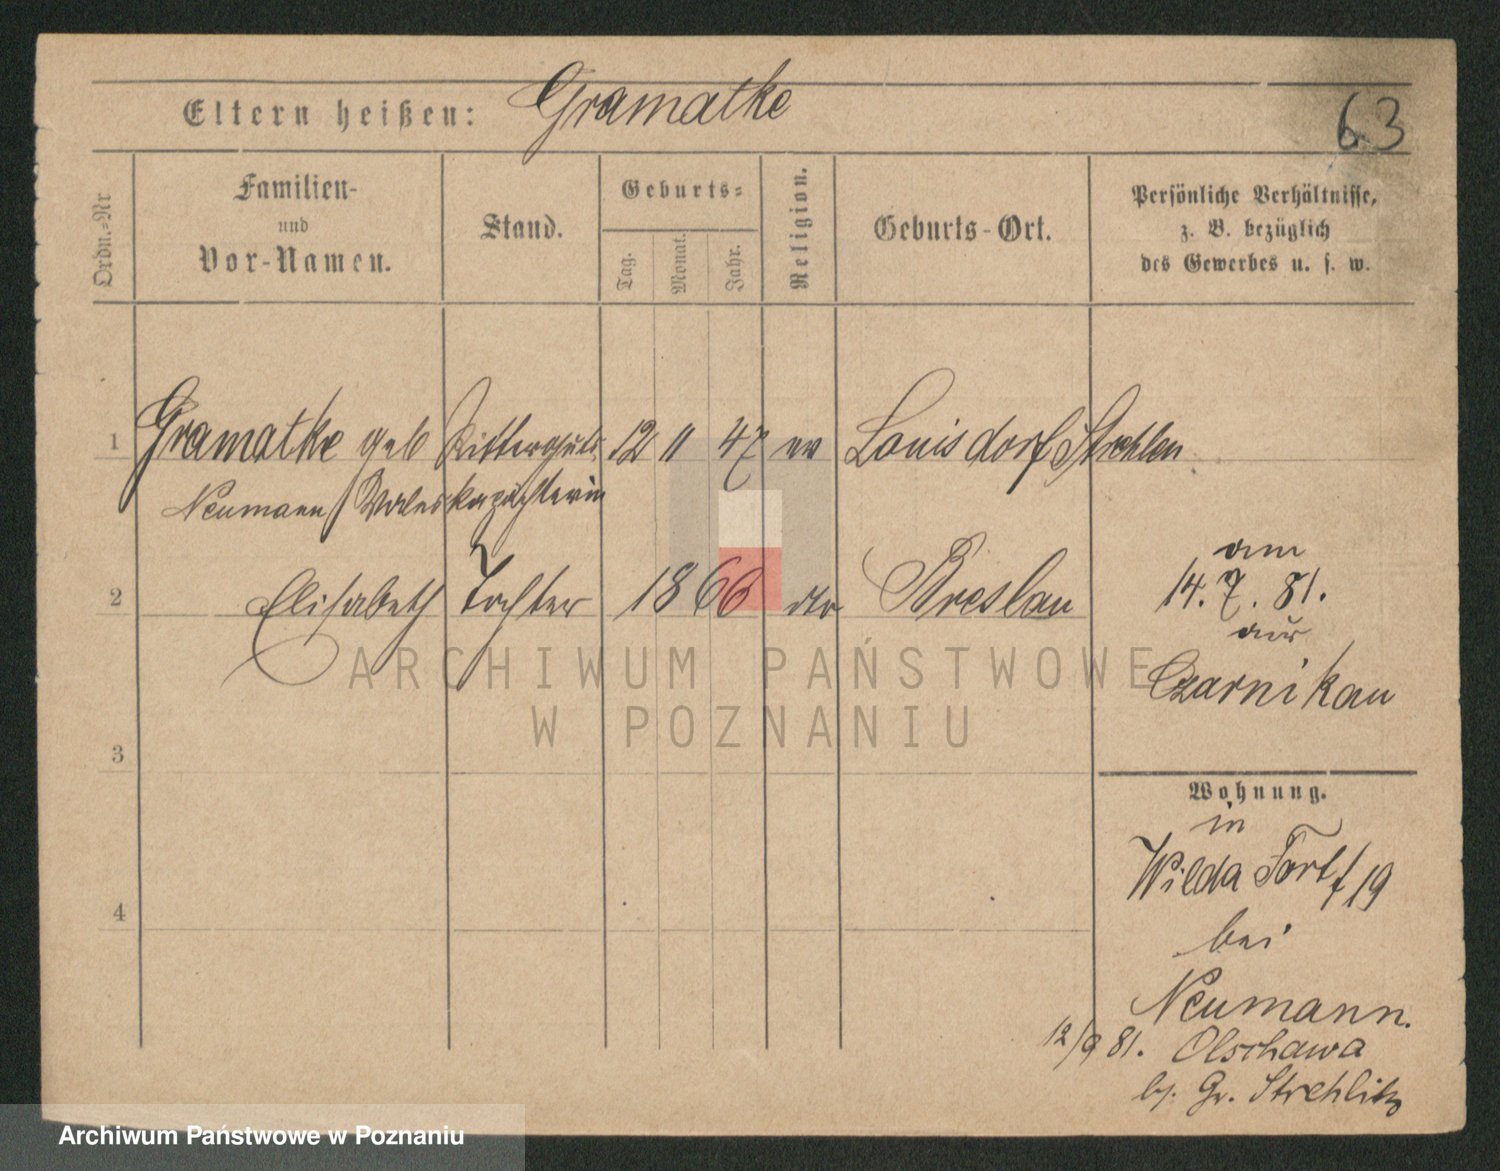 Eltern heißen: Gramatke
63
Ordn.-Nr
Familien-
und
Vor-Namen.
Stand.
Geburts-
Tag.
Monat.
Jahr.
Religion.
Geburts-Ort.
Persönliche Verhältnisse,
z. B. bezüglich
des Gewerbes u. s. w.
1 Gramatke geb Ritterguts 12 11 47 ev Louisdorf Strehlen
Neumann Valeska pächterin
2 Elisabeth Tochter 1866 do Breslau
am
14. 7. 81.
aus
Czarnikau
3
4
Wohnung.
in
Wilda Fort f 19
bei
Neumann.
12/9 81. Olschawa
b. Gr. Strehlitz
ARCHIWUM PAŃSTWOWE
W POZNANIU
Archiwum Państwowe w Poznaniu